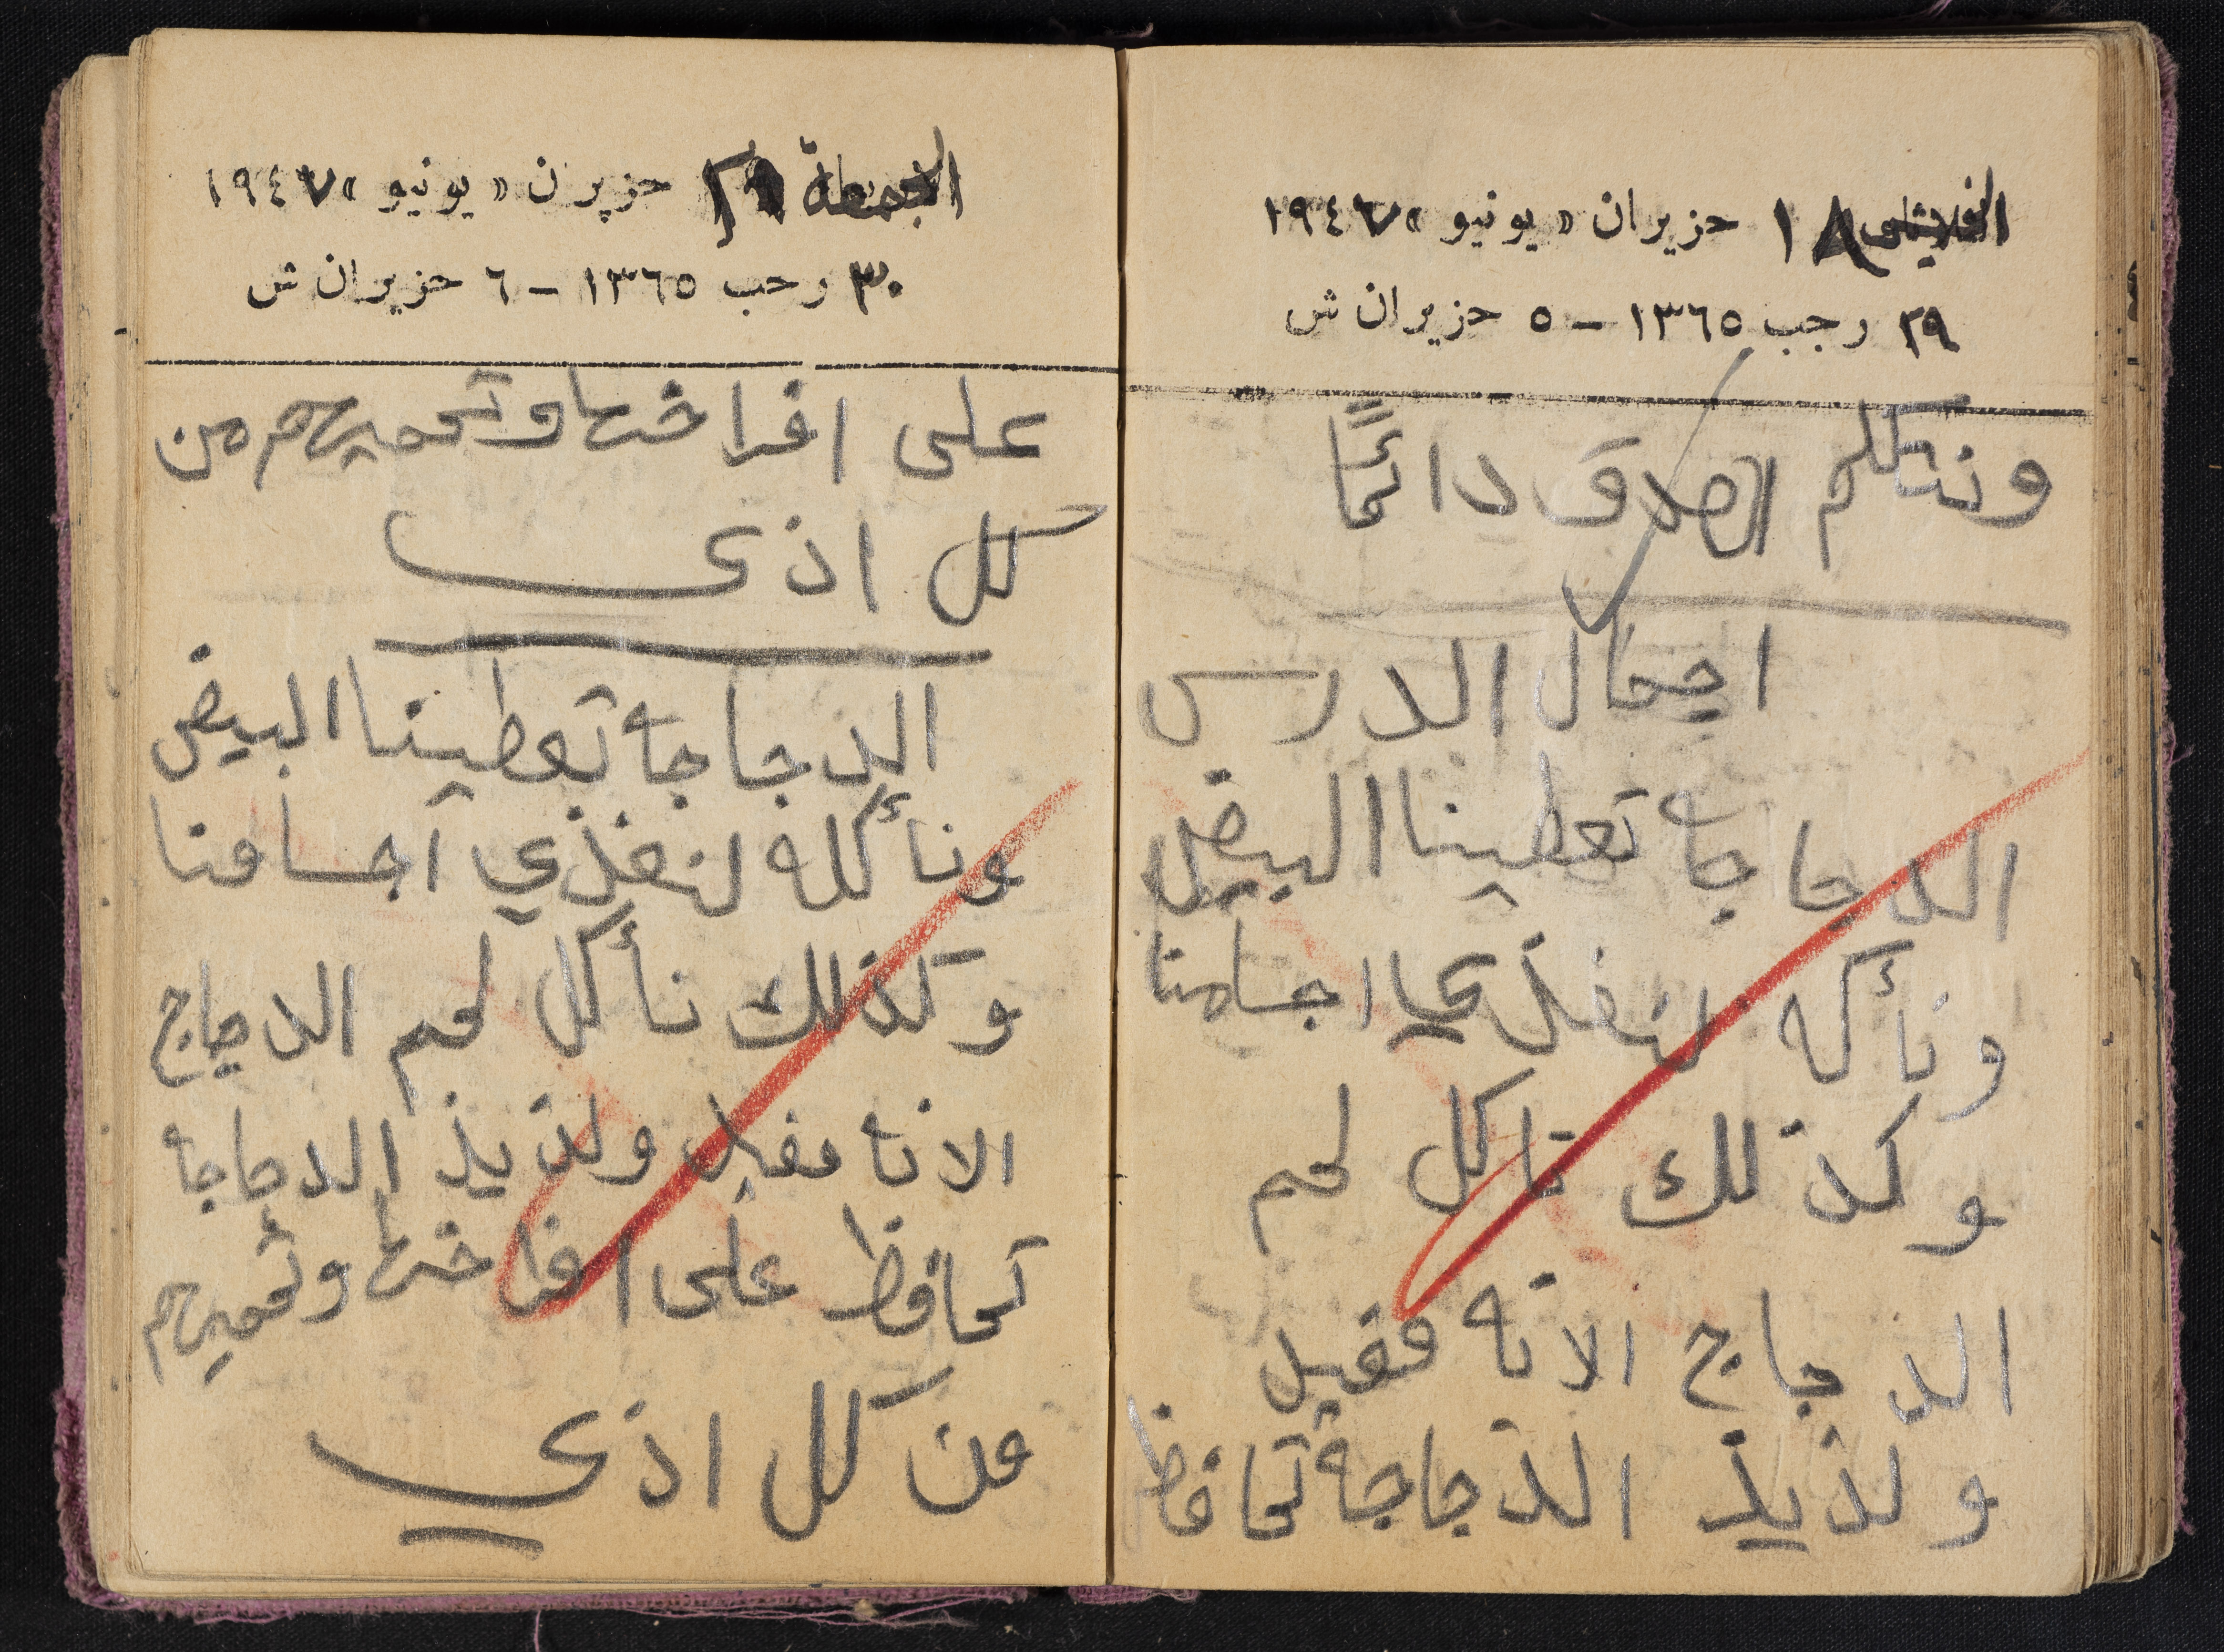 ١٨ حزيران «يونيو» ١٩٤٧
٢٩ رجب ١٣٦٥ - ٥ حزيران ش
ونتكلم الصدق دائمًا
اجمال الدرس
الدجاجه تعطينا البيض
ونأكه لنغذي اجسامنا
وكذلك ناكل لحم
الدجاج الانه مفيد
ولذيذ الدجاجة تحافظ
الجمعة حزيران «يونيو» ١٩٤٧
٣٠ رجب ١٣٦٥ - ٦ حزيران ش
على افراخها وتحميهم من
كل اذى
الدجاجه تعطينا البيض
ونأكله لنغذي اجسامنا
وكذلك نأكل لحم الدجاج
الانه مفيد ولذيذ الدجاجه
تحافظ على افراخها وتحميهم
من كل اذى